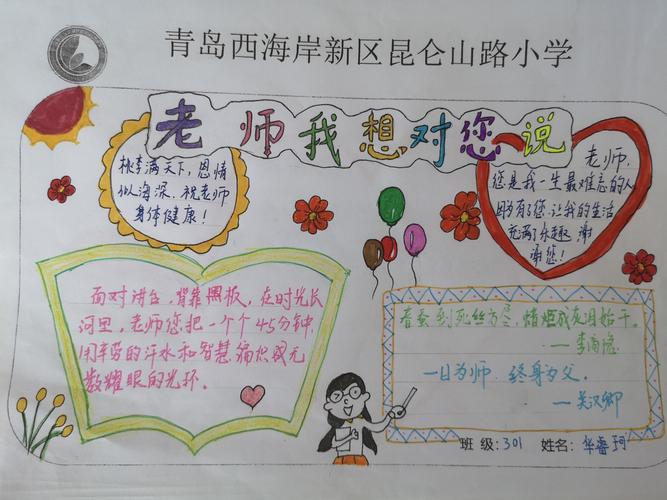 青岛西海岸新区昆仑山路小学
老师我想对您说
桃李满天下,恩情
似海深,祝老师
身体健康!
老师,
您是我一生最难忘的人
因为有了您,让我的生活
充满了乐趣,谢
谢您!
面对讲台,背靠黑板,在时光长
河里,老师您把一个个45分钟,
用辛劳的汗水和智慧,编织成无
数耀眼的光环。
春蚕到死丝方尽,蜡炬成灰泪始干。
——李商隐
一日为师,终身为父。
——关汉卿
班级:301 姓名:华睿